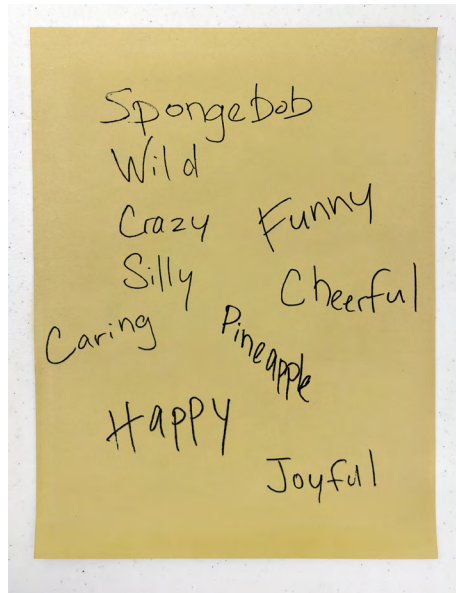 Spongebob
Wild
Crazy
Funny
Silly
Cheerful
Caring
Pineapple
Happy
Joyful